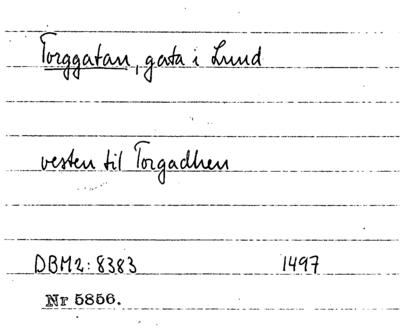 Torggatan, gata i Lund
vesten til Torgadhen
DBM2:8383 1497
Nr 5856.